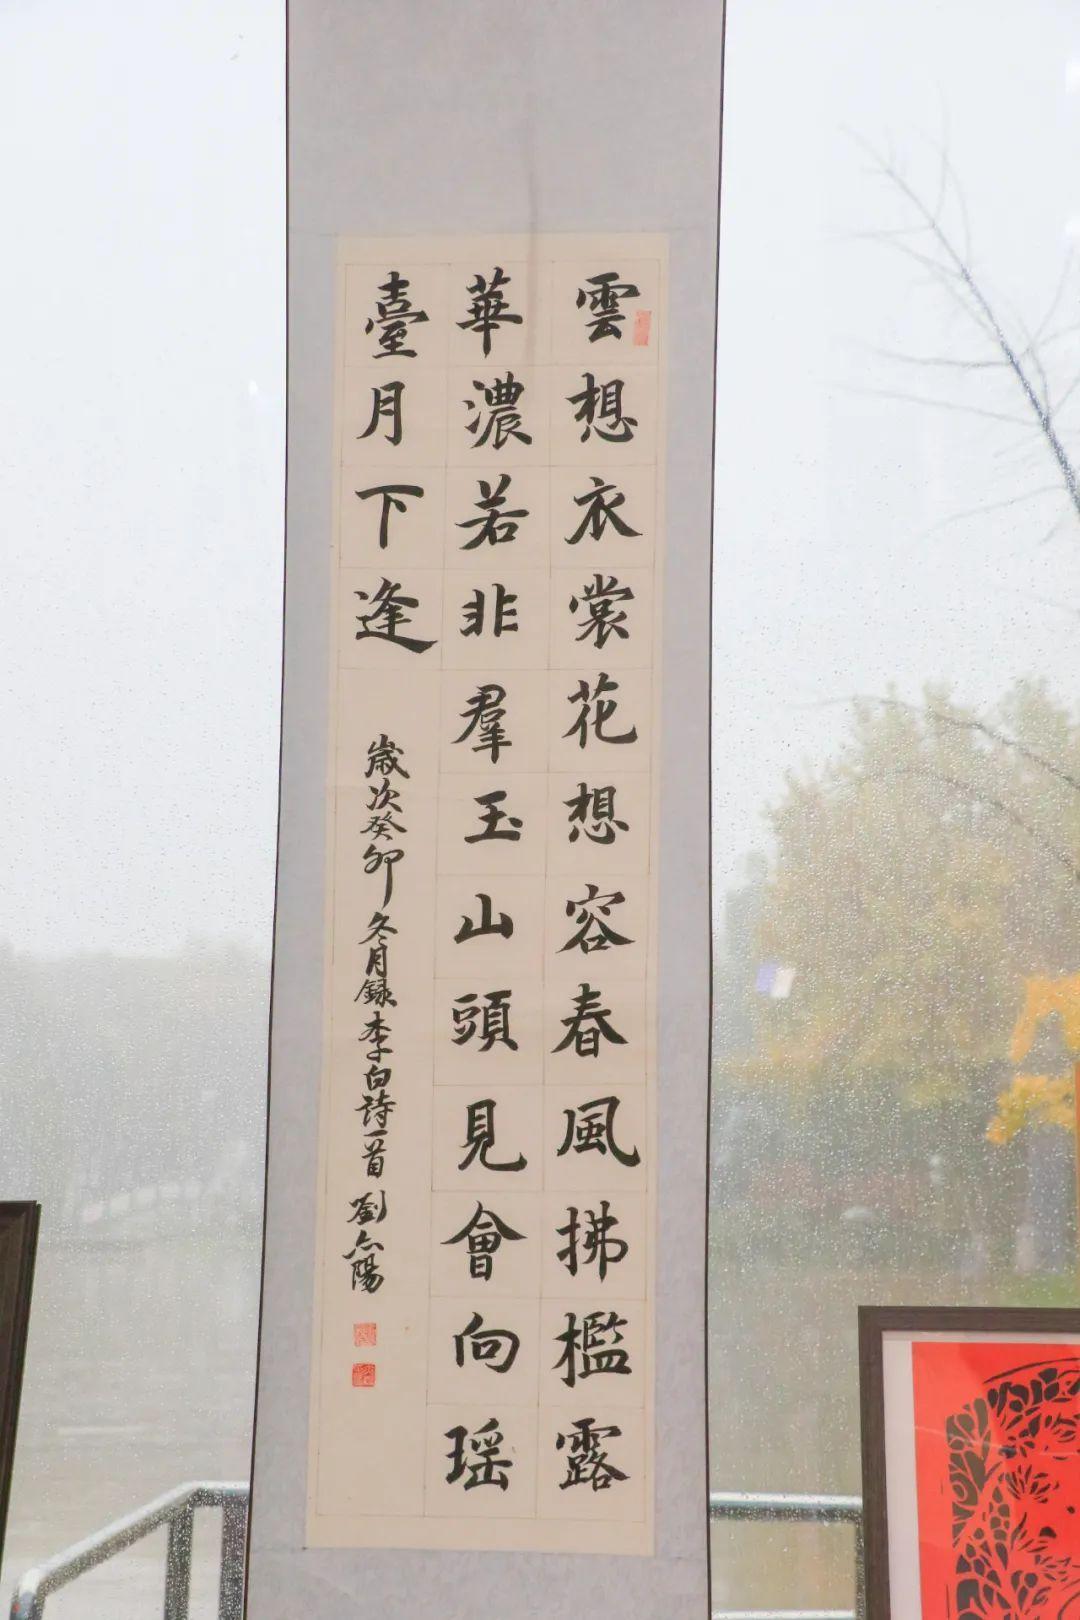 雲想衣裳花想容春風拂檻露
華濃若非羣玉山頭見會向瑶
臺月下逢
歲次癸卯冬月録李白詩一首劉六陽